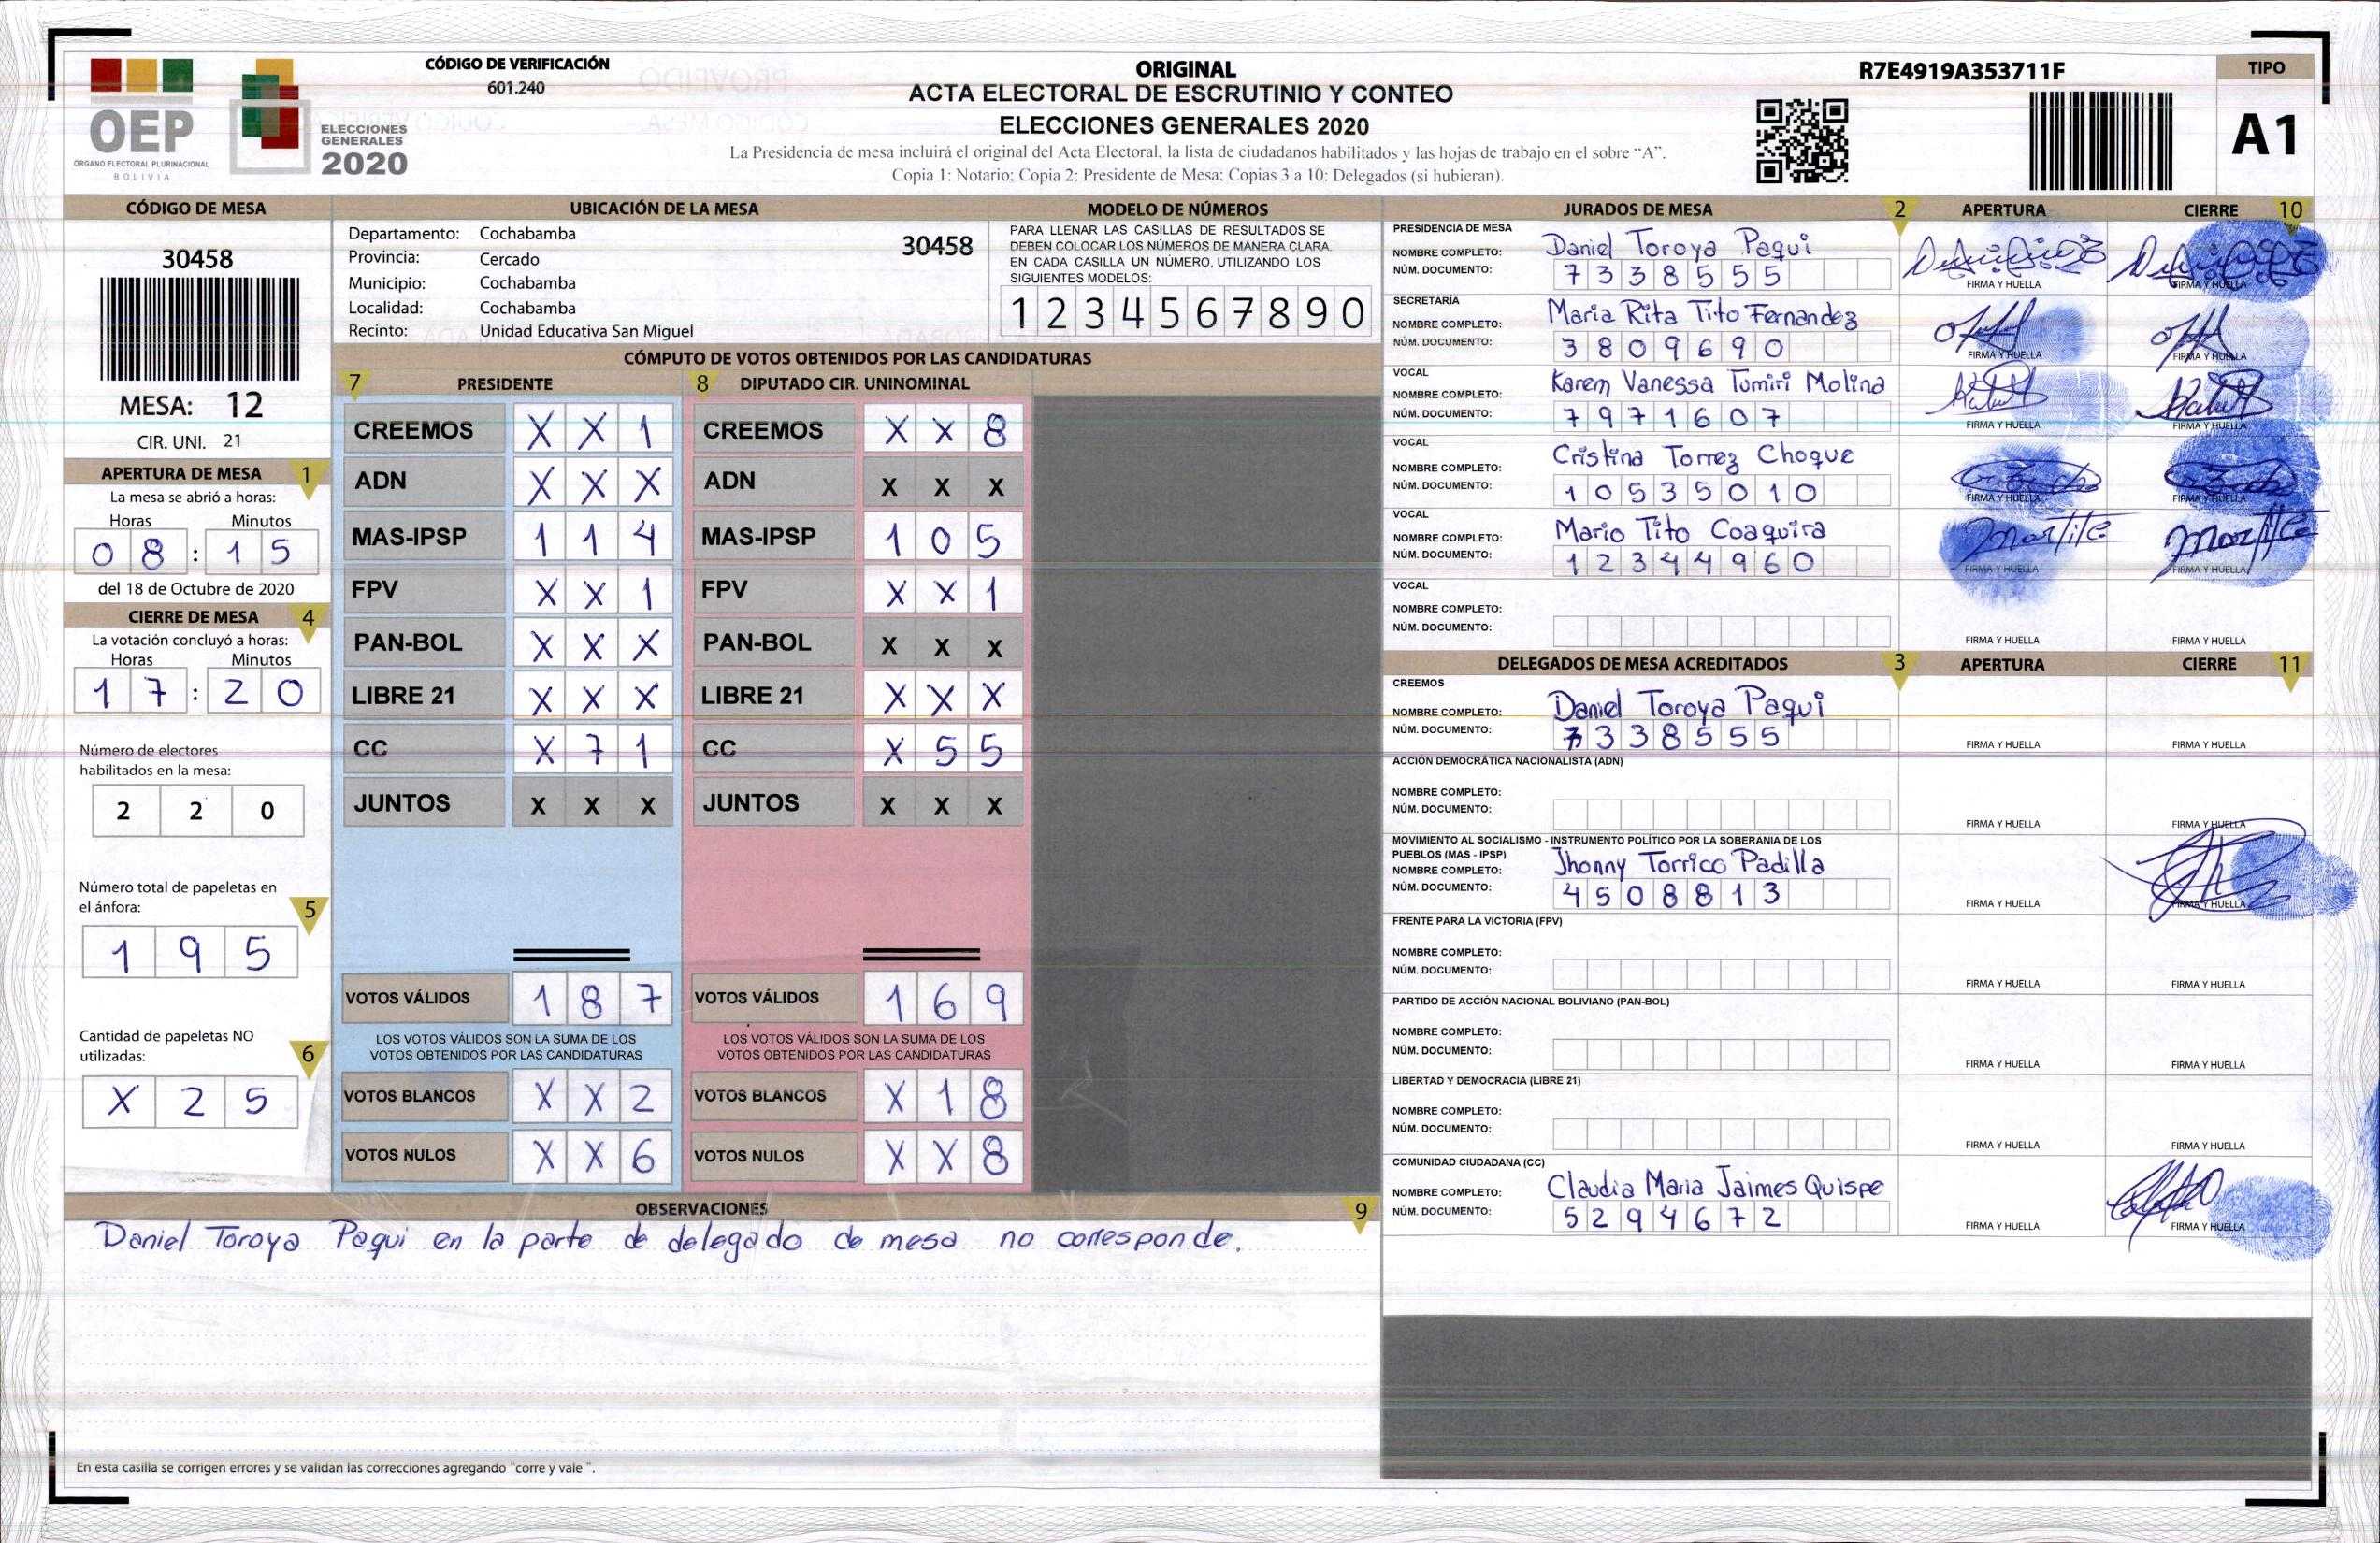 OEP
ÓRGANO ELECTORAL PLURINACIONAL
BOLIVIA
ELECCIONES
GENERALES
2020
CÓDIGO DE VERIFICACIÓN
601.240
ORIGINAL
ACTA ELECTORAL DE ESCRUTINIO Y CONTEO
ELECCIONES GENERALES 2020
La Presidencia de mesa incluirá el original del Acta Electoral, la lista de ciudadanos habilitados y las hojas de trabajo en el sobre “A”.
Copia 1: Notario; Copia 2: Presidente de Mesa; Copias 3 a 10: Delegados (si hubieran).
R7E4919A353711F
TIPO
A1
CÓDIGO DE MESA
30458
MESA: 12
CIR. UNI. 21
APERTURA DE MESA 1
La mesa se abrió a horas:
Horas Minutos
08:15
del 18 de Octubre de 2020
CIERRE DE MESA 4
La votación concluyó a horas:
Horas Minutos
17:20
Número de electores
habilitados en la mesa:
2 2 0
Número total de papeletas en
el ánfora: 5
1 9 5
Cantidad de papeletas NO
utilizadas: 6
X 2 5
UBICACIÓN DE LA MESA
Departamento: Cochabamba
30458
Provincia: Cercado
Municipio: Cochabamba
Localidad: Cochabamba
Recinto: Unidad Educativa San Miguel
MODELO DE NÚMEROS
PARA LLENAR LAS CASILLAS DE RESULTADOS SE
DEBEN COLOCAR LOS NÚMEROS DE MANERA CLARA,
EN CADA CASILLA UN NÚMERO, UTILIZANDO LOS
SIGUIENTES MODELOS:
1 2 3 4 5 6 7 8 9 0
CÓMPUTO DE VOTOS OBTENIDOS POR LAS CANDIDATURAS
7 PRESIDENTE 8 DIPUTADO CIR. UNINOMINAL
CREEMOS X X 1 CREEMOS X X 8
ADN X X X ADN X X X
MAS-IPSP 1 1 4 MAS-IPSP 1 0 5
FPV X X 1 FPV X X 1
PAN-BOL X X X PAN-BOL X X X
LIBRE 21 X X X LIBRE 21 X X X
CC X 7 1 CC X 5 5
JUNTOS X X X JUNTOS X X X
VOTOS VÁLIDOS 1 8 7 VOTOS VÁLIDOS 1 6 9
LOS VOTOS VÁLIDOS SON LA SUMA DE LOS LOS VOTOS VÁLIDOS SON LA SUMA DE LOS
VOTOS OBTENIDOS POR LAS CANDIDATURAS VOTOS OBTENIDOS POR LAS CANDIDATURAS
VOTOS BLANCOS X X 2 VOTOS BLANCOS X 1 8
VOTOS NULOS X X 6 VOTOS NULOS X X 8
OBSERVACIONES 9
Daniel Toroya Paqui en la parte de delegado de mesa no corresponde.
En esta casilla se corrigen errores y se validan las correcciones agregando "corre y vale ".
JURADOS DE MESA 2 APERTURA CIERRE 10
PRESIDENCIA DE MESA
NOMBRE COMPLETO: Daniel Toroya Paqui
NÚM. DOCUMENTO: 7338555
FIRMA Y HUELLA FIRMA Y HUELLA
SECRETARÍA
NOMBRE COMPLETO: Maria Rita Tito Fernandez
NÚM. DOCUMENTO: 3809690
FIRMA Y HUELLA FIRMA Y HUELLA
VOCAL
NOMBRE COMPLETO: Karem Vanessa Tumiri Molina
NÚM. DOCUMENTO: 7971607
FIRMA Y HUELLA FIRMA Y HUELLA
VOCAL
NOMBRE COMPLETO: Cristina Torrez Choque
NÚM. DOCUMENTO: 10535010
FIRMA Y HUELLA FIRMA Y HUELLA
VOCAL
NOMBRE COMPLETO: Mario Tito Coaquira
NÚM. DOCUMENTO: 12344960
FIRMA Y HUELLA FIRMA Y HUELLA
VOCAL
NOMBRE COMPLETO:
NÚM. DOCUMENTO:
FIRMA Y HUELLA FIRMA Y HUELLA
DELEGADOS DE MESA ACREDITADOS 3 APERTURA CIERRE 11
CREEMOS
NOMBRE COMPLETO: Daniel Toroya Paqui
NÚM. DOCUMENTO: 7338555
FIRMA Y HUELLA FIRMA Y HUELLA
ACCIÓN DEMOCRÁTICA NACIONALISTA (ADN)
NOMBRE COMPLETO:
NÚM. DOCUMENTO:
FIRMA Y HUELLA FIRMA Y HUELLA
MOVIMIENTO AL SOCIALISMO - INSTRUMENTO POLÍTICO POR LA SOBERANIA DE LOS
PUEBLOS (MAS - IPSP)
NOMBRE COMPLETO: Jhonny Torrico Padilla
NÚM. DOCUMENTO: 4508813
FIRMA Y HUELLA FIRMA Y HUELLA
FRENTE PARA LA VICTORIA (FPV)
NOMBRE COMPLETO:
NÚM. DOCUMENTO:
FIRMA Y HUELLA FIRMA Y HUELLA
PARTIDO DE ACCIÓN NACIONAL BOLIVIANO (PAN-BOL)
NOMBRE COMPLETO:
NÚM. DOCUMENTO:
FIRMA Y HUELLA FIRMA Y HUELLA
LIBERTAD Y DEMOCRACIA (LIBRE 21)
NOMBRE COMPLETO:
NÚM. DOCUMENTO:
FIRMA Y HUELLA FIRMA Y HUELLA
COMUNIDAD CIUDADANA (CC)
NOMBRE COMPLETO: Claudia Maria Jaimes Quispe
NÚM. DOCUMENTO: 5294672
FIRMA Y HUELLA FIRMA Y HUELLA